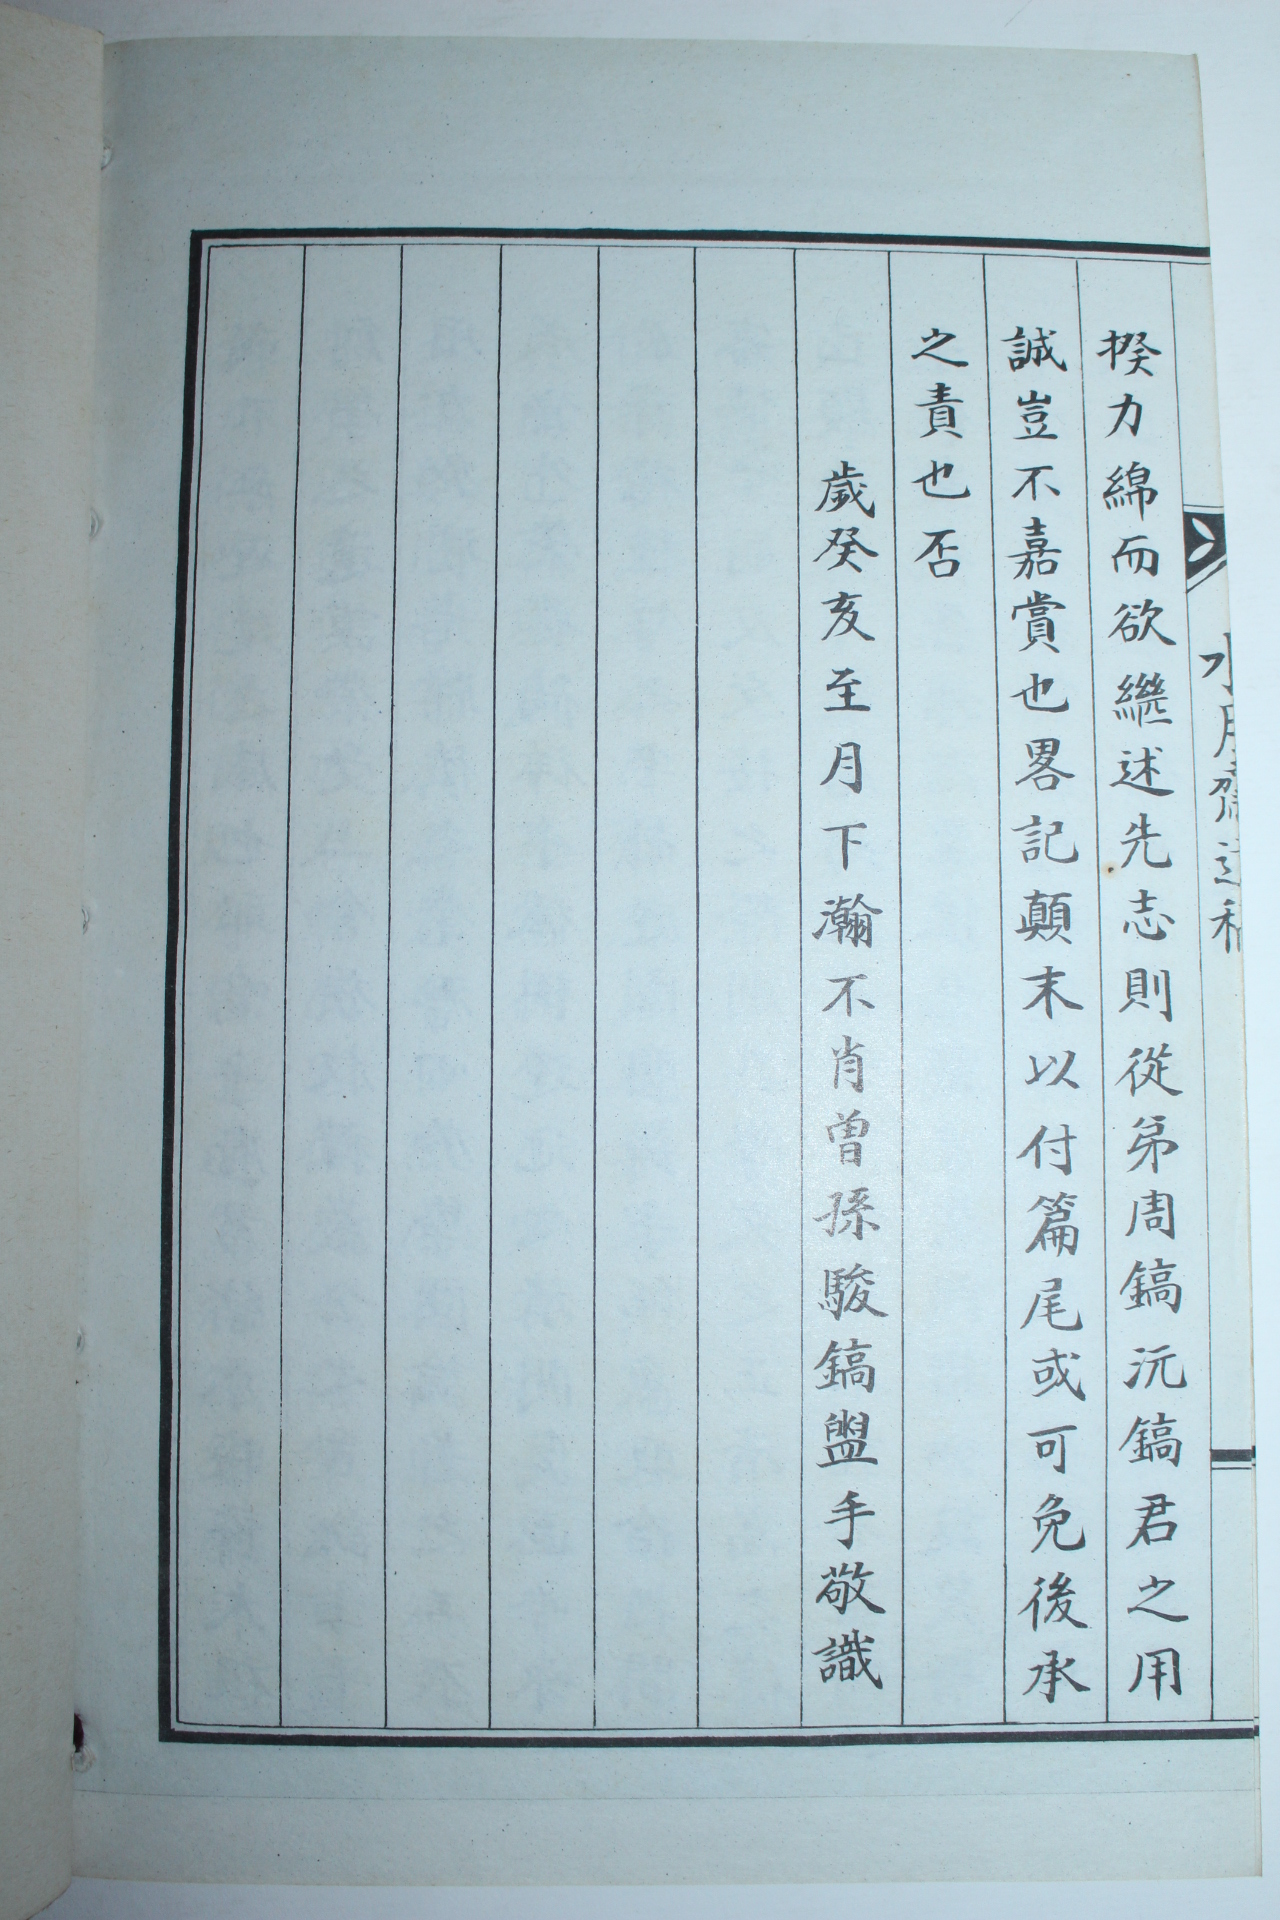 水月齋逸稿
揆力綿而欲繼述先志則從弟周鎬沅鎬君之用
誠豈不嘉賞也畧記顛末以付篇尾或可免後承
之責也否
歲癸亥至月下瀚不肖曾孫駿鎬盥手敬識